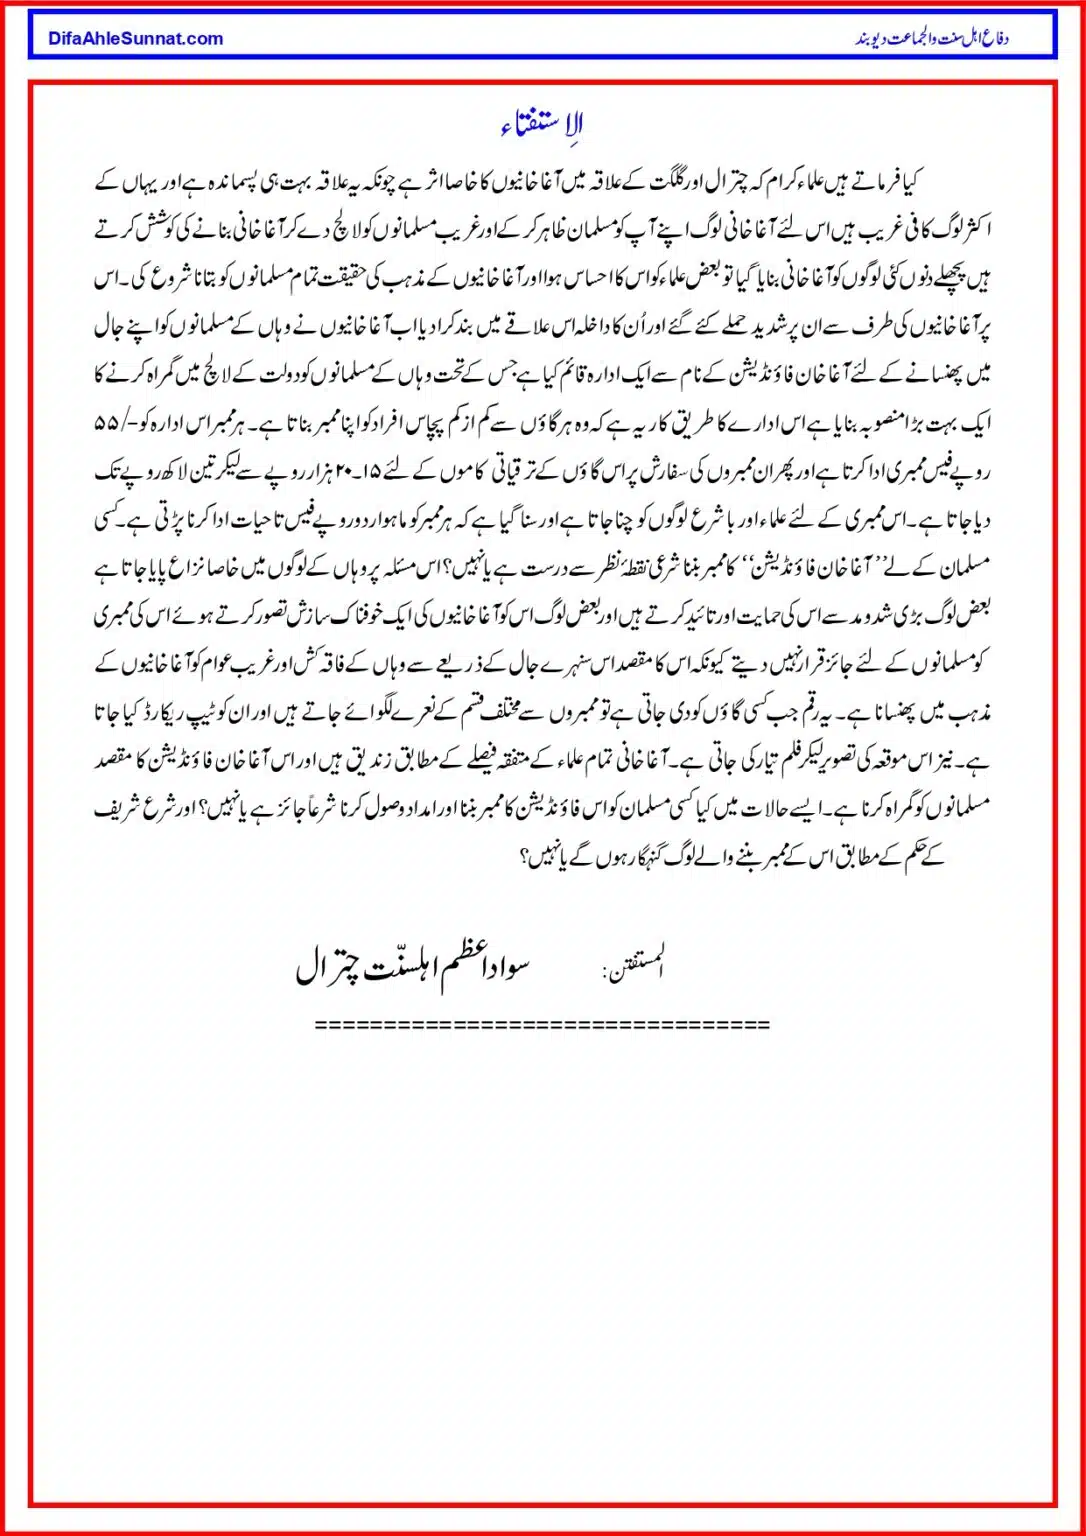 DifaAhleSunnat.com
دفاع اہل سنت والجماعت دیوبند
الِاستفتاء
کیا فرماتے ہیں علماء کرام کہ چترال اور گلگت کے علاقہ میں آغاخانیوں کا خاصا اثر ہے چونکہ یہ علاقہ بہت ہی پسماندہ ہے اور یہاں کے
اکثر لوگ کافی غریب ہیں اس لئے آغاخانی لوگ اپنے آپ کو مسلمان ظاہر کرکے اور غریب مسلمانوں کو لالچ دے کر آغاخانی بنانے کی کوشش کرتے
ہیں پچھلے دنوں کئی لوگوں کو آغاخانی بنایا گیا تو بعض علماء کو اس کا احساس ہوا اور آغاخانیوں کے مذہب کی حقیقت تمام مسلمانوں کو بتانا شروع کی۔ اس
پر آغاخانیوں کی طرف سے ان پر شدید حملے کئے گئے اور اُن کا داخلہ اس علاقے میں بند کرا دیا اب آغاخانیوں نے وہاں کے مسلمانوں کو اپنے جال
میں پھنسانے کے لئے آغاخان فاؤنڈیشن کے نام سے ایک ادارہ قائم کیا ہے جس کے تحت وہاں کے مسلمانوں کو دولت کے لالچ میں گمراہ کرنے کا
ایک بہت بڑا منصوبہ بنایا ہے اس ادارے کا طریق کار یہ ہے کہ وہ ہر گاؤں سے کم از کم پچاس افراد کو اپنا ممبر بناتا ہے۔ ہر ممبر اس ادارہ کو -/۵۵
روپے فیس ممبری ادا کرتا ہے اور پھر ان ممبروں کی سفارش پر اس گاؤں کے ترقیاتی کاموں کے لئے ۱۵۔۲۰ ہزار روپے سے لیکر تین لاکھ روپے تک
دیا جاتا ہے۔ اس ممبری کے لئے علماء اور باشرع لوگوں کو چنا جاتا ہے اور سنا گیا ہے کہ ہر ممبر کو ماہوار دو روپے فیس تا حیات ادا کرنا پڑتی ہے۔ کسی
مسلمان کے لے ’’آغاخان فاؤنڈیشن‘‘ کا ممبر بننا شرعی نقطۂ نظر سے درست ہے یا نہیں؟ اس مسئلہ پر وہاں کے لوگوں میں خاصا نزاع پایا جاتا ہے
بعض لوگ بڑی شدومد سے اس کی حمایت اور تائید کرتے ہیں اور بعض لوگ اس کو آغاخانیوں کی ایک خوفناک سازش تصور کرتے ہوئے اس کی ممبری
کو مسلمانوں کے لئے جائز قرار نہیں دیتے کیونکہ اس کا مقصد اس سنہرے جال کے ذریعے سے وہاں کے فاقہ کش اور غریب عوام کو آغاخانیوں کے
مذہب میں پھنسانا ہے۔ یہ رقم جب کسی گاؤں کو دی جاتی ہے تو ممبروں سے مختلف قسم کے نعرے لگوائے جاتے ہیں اور ان کو ٹیپ ریکارڈ کیا جاتا
ہے۔ نیز اس موقعہ کی تصویر لیکر فلم تیار کی جاتی ہے۔ آغاخانی تمام علماء کے متفقہ فیصلے کے مطابق زندیق ہیں اور اس آغاخان فاؤنڈیشن کا مقصد
مسلمانوں کو گمراہ کرنا ہے۔ ایسے حالات میں کیا کسی مسلمان کو اس فاؤنڈیشن کا ممبر بننا اور امداد وصول کرنا شرعاً جائز ہے یا نہیں؟ اور شرع شریف
کے حکم کے مطابق اس کے ممبر بننے والے لوگ گنہگار ہوں گے یا نہیں؟
المستفتن: سواد اعظم اہلسنّت چترال
=================================